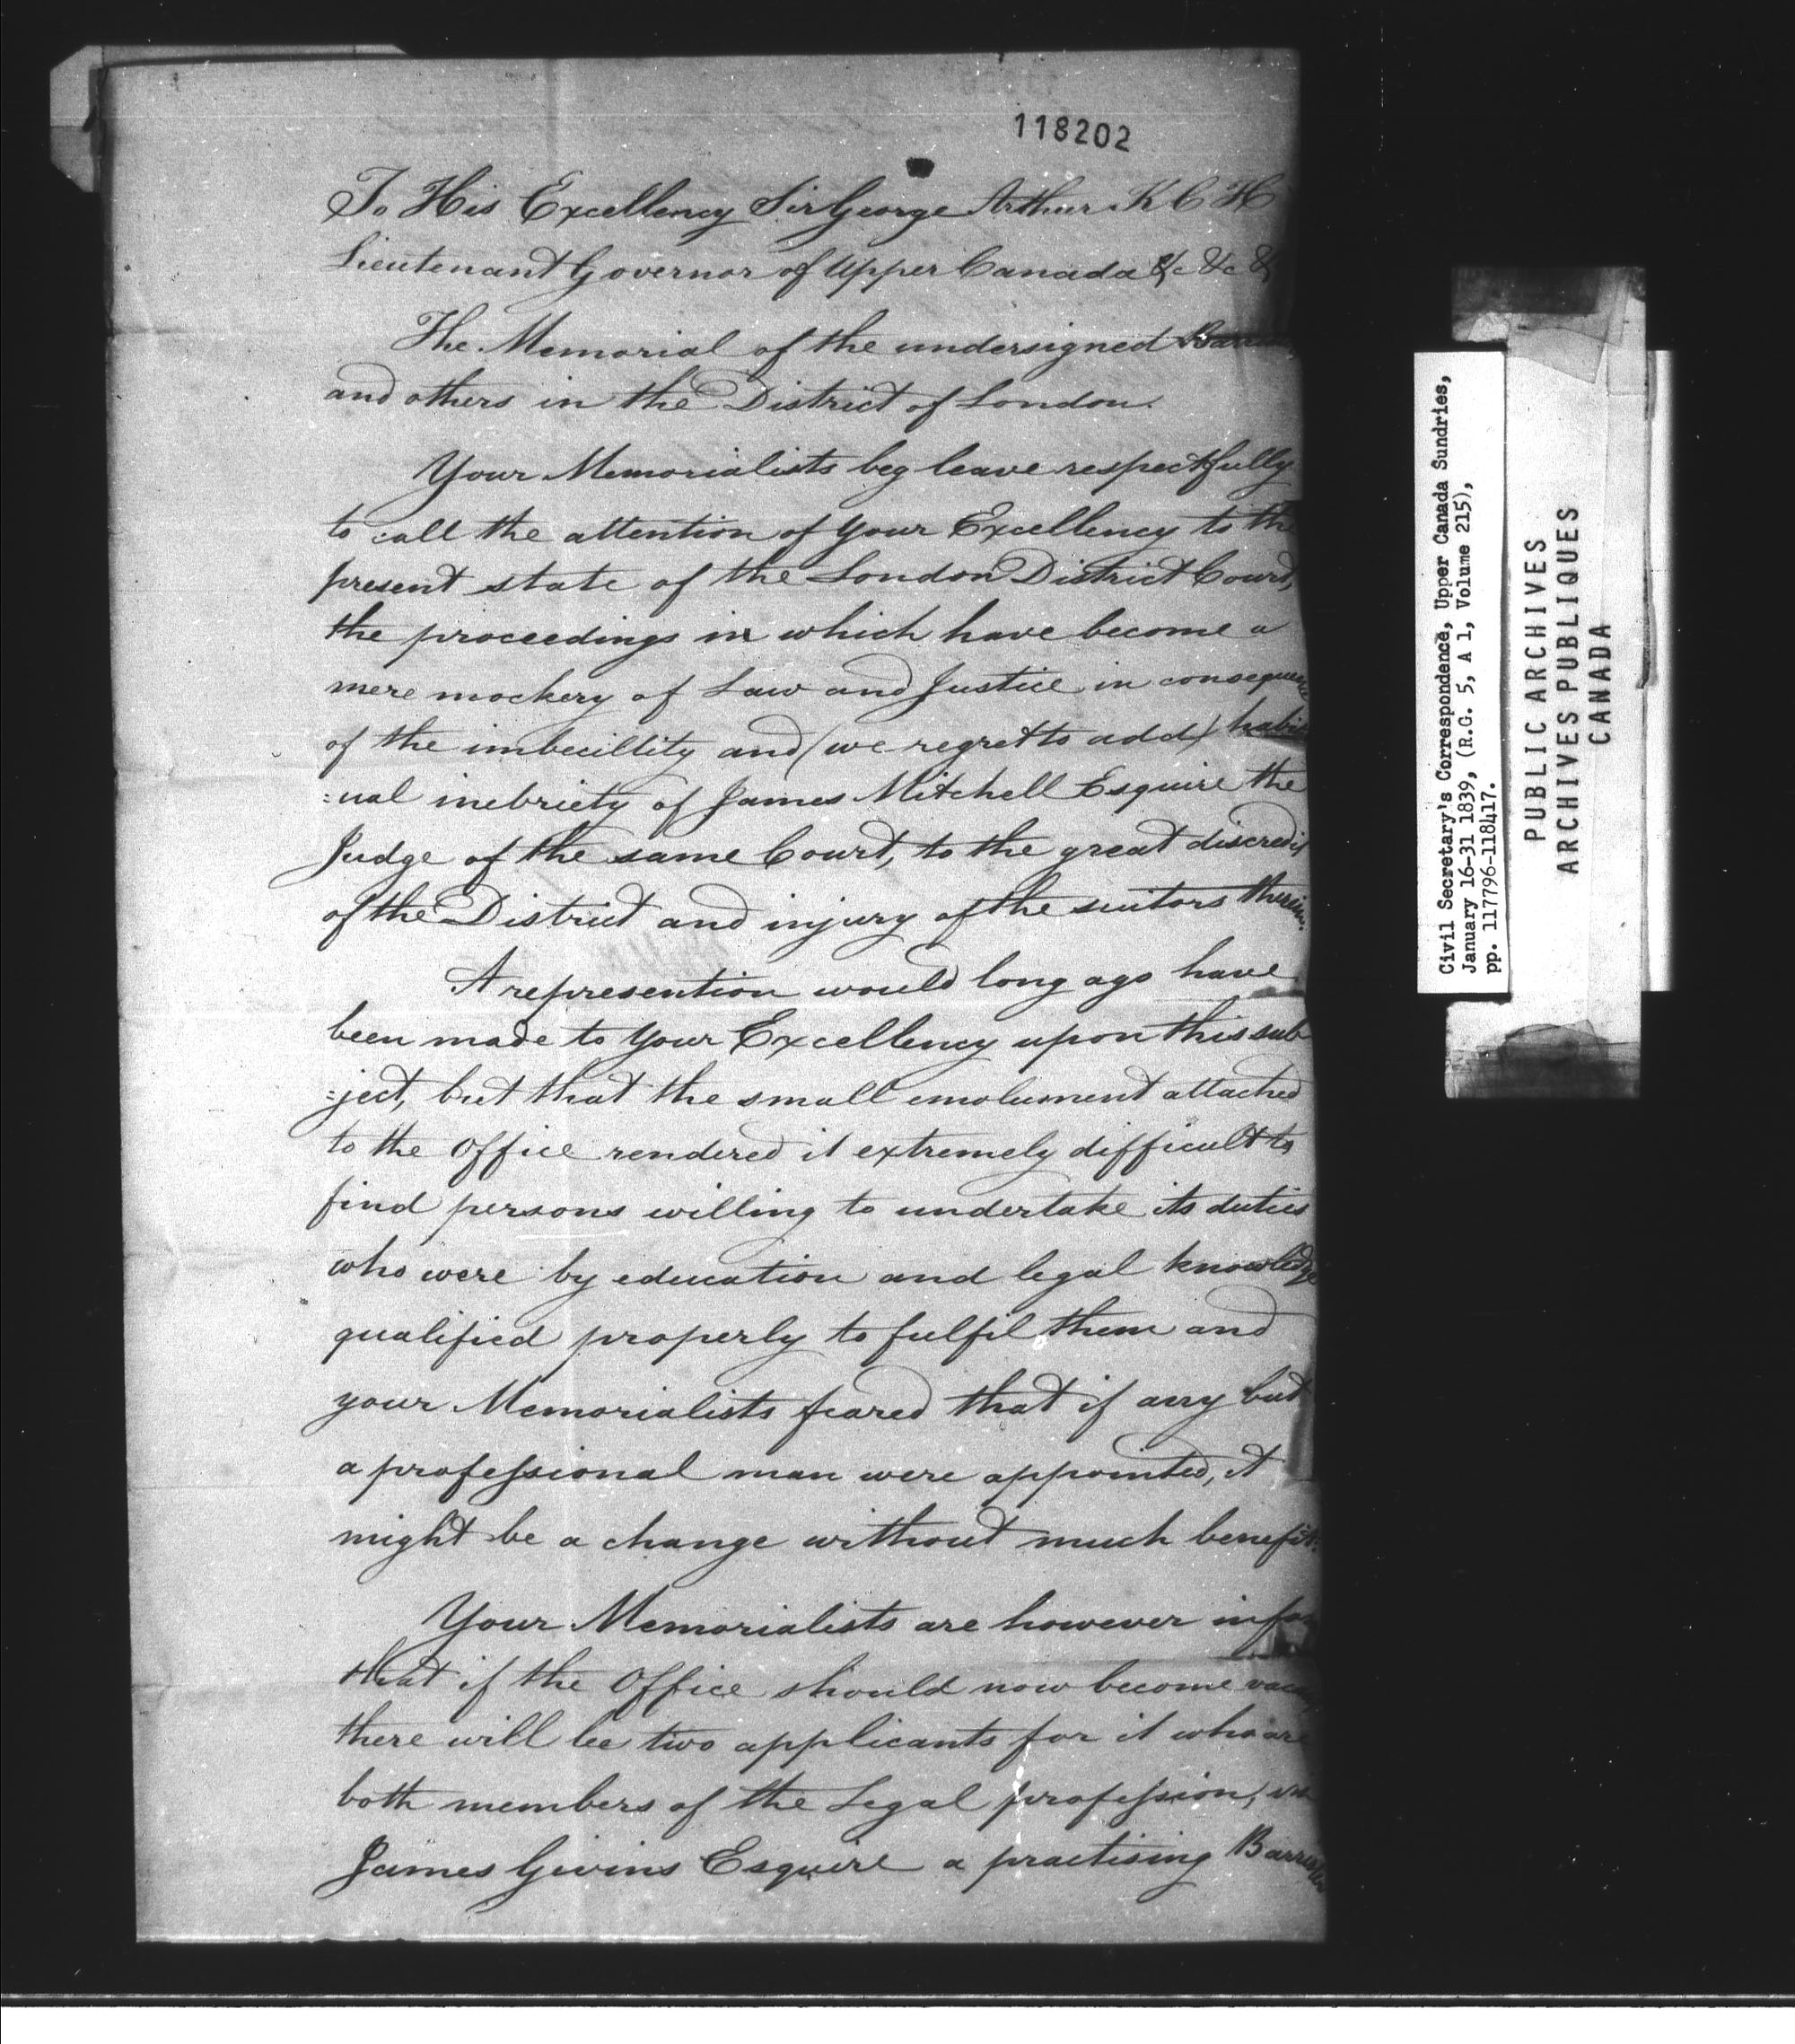 118202
To His Excellency Sir George Arthur K C H
Lieutenant Governor of Upper Canada &c &c &
The Memorial of the undersigned
and others in the District of London.
Your Memorialists beg leave respectfully
to call the attention of Your Excellency to the
present state of the London District Court,
the proceedings in which have become a
mere mockery of Law and Justice in consequence
of the imbecillity and (we regret to add) habit
=ual inebriety of James Mitchell Esquire the
Judge of the same Court, to the great discredit
of the District and injury of the suitors therein.
A represention would long ago have
been made to Your Excellency upon this sub
=ject, but that the small emolument attached
to the Office rendered it extremely difficult to
find persons willing to undertake its duties
who were by education and legal knowledge
qualified properly to fulfil them and
your Memorialists feared that if any but
a professional man were appointed, it
might be a change without much benefit.
Your Memorialists are however infor
that if the Office should now become vacant
there will be two applicants for it who are
both members of the Legal profession,
James Givins Esquire a practising Barrister
Civil Secretary's Correspondence, Upper Canada Sundries,
January 16-31 1839, (R.G. 5, A 1, Volume 215),
pp. 117796-118417.
PUBLIC ARCHIVES
ARCHIVES PUBLIQUES
CANADA